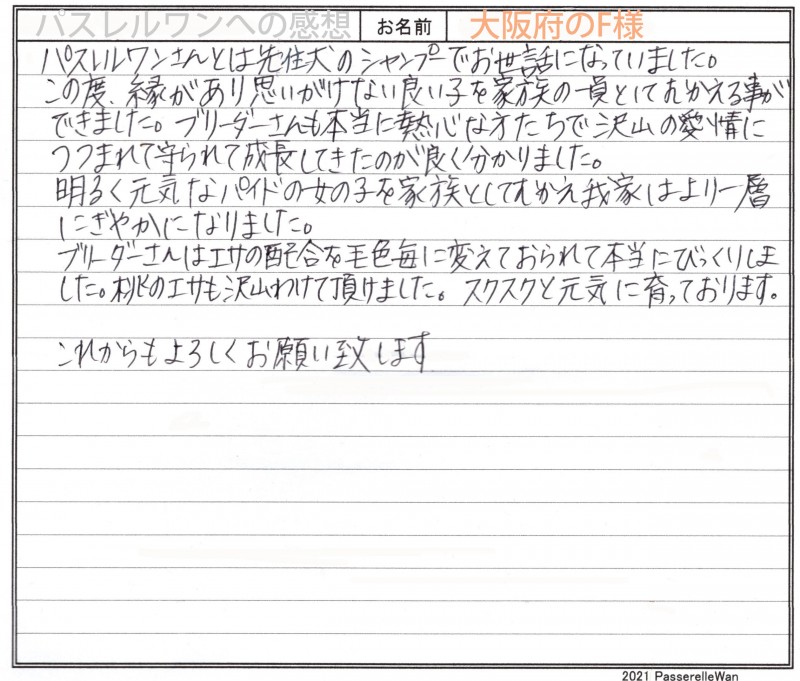 パスレルワンへの感想 お名前 大阪府のF様
パスレルワンさんとは先住犬のシャンプーでお世話になっていました。
この度、縁があり思いがけない良い子を家族の一員としてむかえる事が
できました。ブリーダーさんも本当に熱心な方たちで沢山の愛情に
つつまれて守られて成長してきたのが良く分かりました。
明るく元気なパイドの女の子を家族としてむかえ我家はより一層
にぎやかになりました。
ブリーダーさんはエサの配合を毛色毎に変えておられて本当にびっくりしま
した。桃のエサも沢山わけて頂けました。スクスクと元気に育っております。
これからもよろしくお願い致します
2021 PasserelleWan